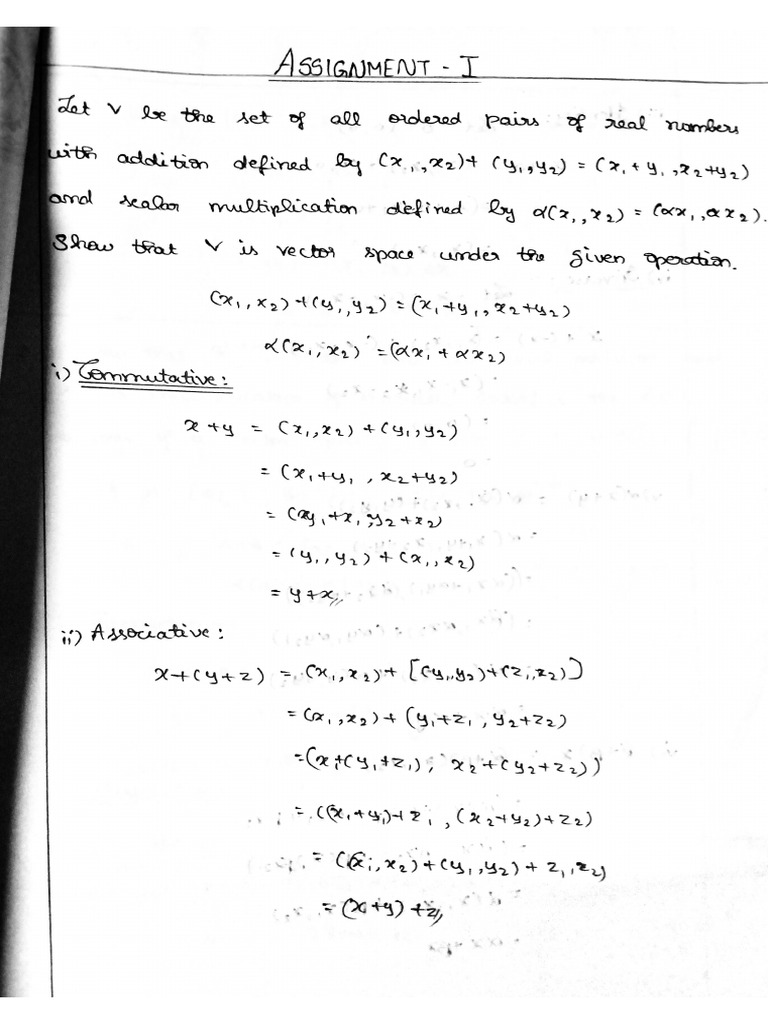 ASSIGNMENT - I
Let V be the set of all ordered pairs of real numbers
with addition defined by (x₁, x₂) + (y₁, y₂) = (x₁ + y₁, x₂ + y₂)
and scalar multiplication defined by α(x₁, x₂) = (αx₁, αx₂).
Show that V is vector space under the given operation.
(x₁, x₂) + (y₁, y₂) = (x₁ + y₁, x₂ + y₂)
α(x₁, x₂) = (αx₁ + αx₂)
i) Commutative:
x + y = (x₁, x₂) + (y₁, y₂)
= (x₁ + y₁, x₂ + y₂)
= (y₁ + x₁, y₂ + x₂)
= (y₁, y₂) + (x₁, x₂)
= y + x //
ii) Associative:
x + (y + z) = (x₁, x₂) + [(y₁, y₂) + (z₁, z₂)]
= (x₁, x₂) + (y₁ + z₁, y₂ + z₂)
= (x₁ + (y₁ + z₁), x₂ + (y₂ + z₂))
= ((x₁ + y₁) + z₁, (x₂ + y₂) + z₂)
= ((x₁, x₂) + (y₁, y₂) + z₁, z₂)
= (x + y) + z //